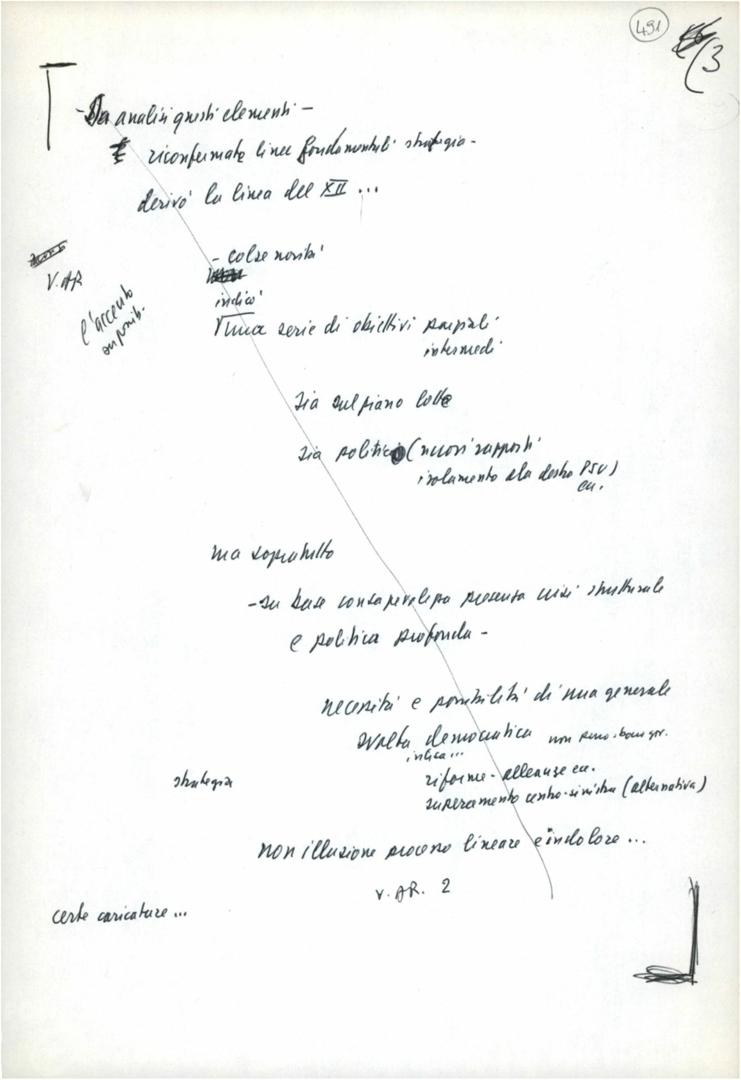 491
3
- Da analisi questi elementi -
riconfermate linee fondamentali strategia -
derivò la linea del XII ...
V. AR
l'accento
su possib.
- colse novità
indicò
una serie di obiettivi parziali
intermedi
sia sul piano lotte
sia politico (nuovi rapporti
isolamento ala destra PSU)
ecc.
ma sopratutto
- su base consapevolezza presenza crisi strutturale
e politica profonda -
necessità e possibilità di una generale
svolta democratica non
indica ...
riforme - alleanze ecc.
strategia
superamento centro-sinistra (alternativa)
non illusione processo lineare e indolore ...
V. AR. 2
certe caricature ...